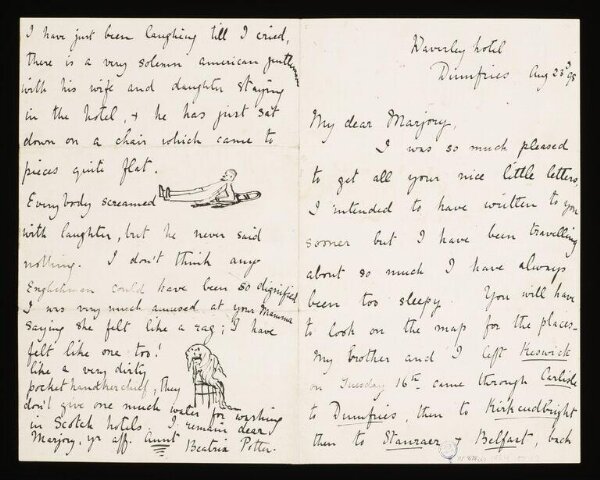 Waverley Hotel
Dumfries Aug 23rd 98
My dear Marjory,
I was so much pleased
to get all your nice little letters,
I intended to have written to you
sooner but I have been travelling
about so much I have always
been too sleepy. You will have
to look on the map for the places-
My brother and I left Keswick
on Tuesday 16th came through Carlisle
to Dumfries, then to Kirkcudbright
then to Stanraer & Belfast, back
I have just been laughing till I cried,
there is a very solemn american gentleman
with his wife and daughter staying
in the hotel, & he has just sat
down on a chair which came to
pieces quite flat.
Everybody screamed
with laughter, but he never said
nothing. I don't think any
Englishman could have been so dignified
I was very much amused at your Mamma
saying she felt like a rag; I have
felt like one too!
like a very dirty
pocket handkerchief, they
don't give one much water for washing
in Scotch hotels. I remain dear
Marjory, yr aff. Aunt Beatrix Potter.